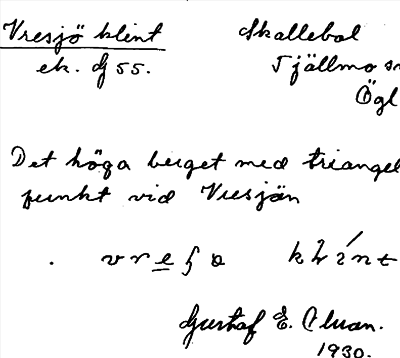 Vresjö klint
Skallebol
ek. G 55.
Tjällmo sn
Ögl
Det höga berget med triangel
punkt vid Vresjön
Gustaf E.
1930.